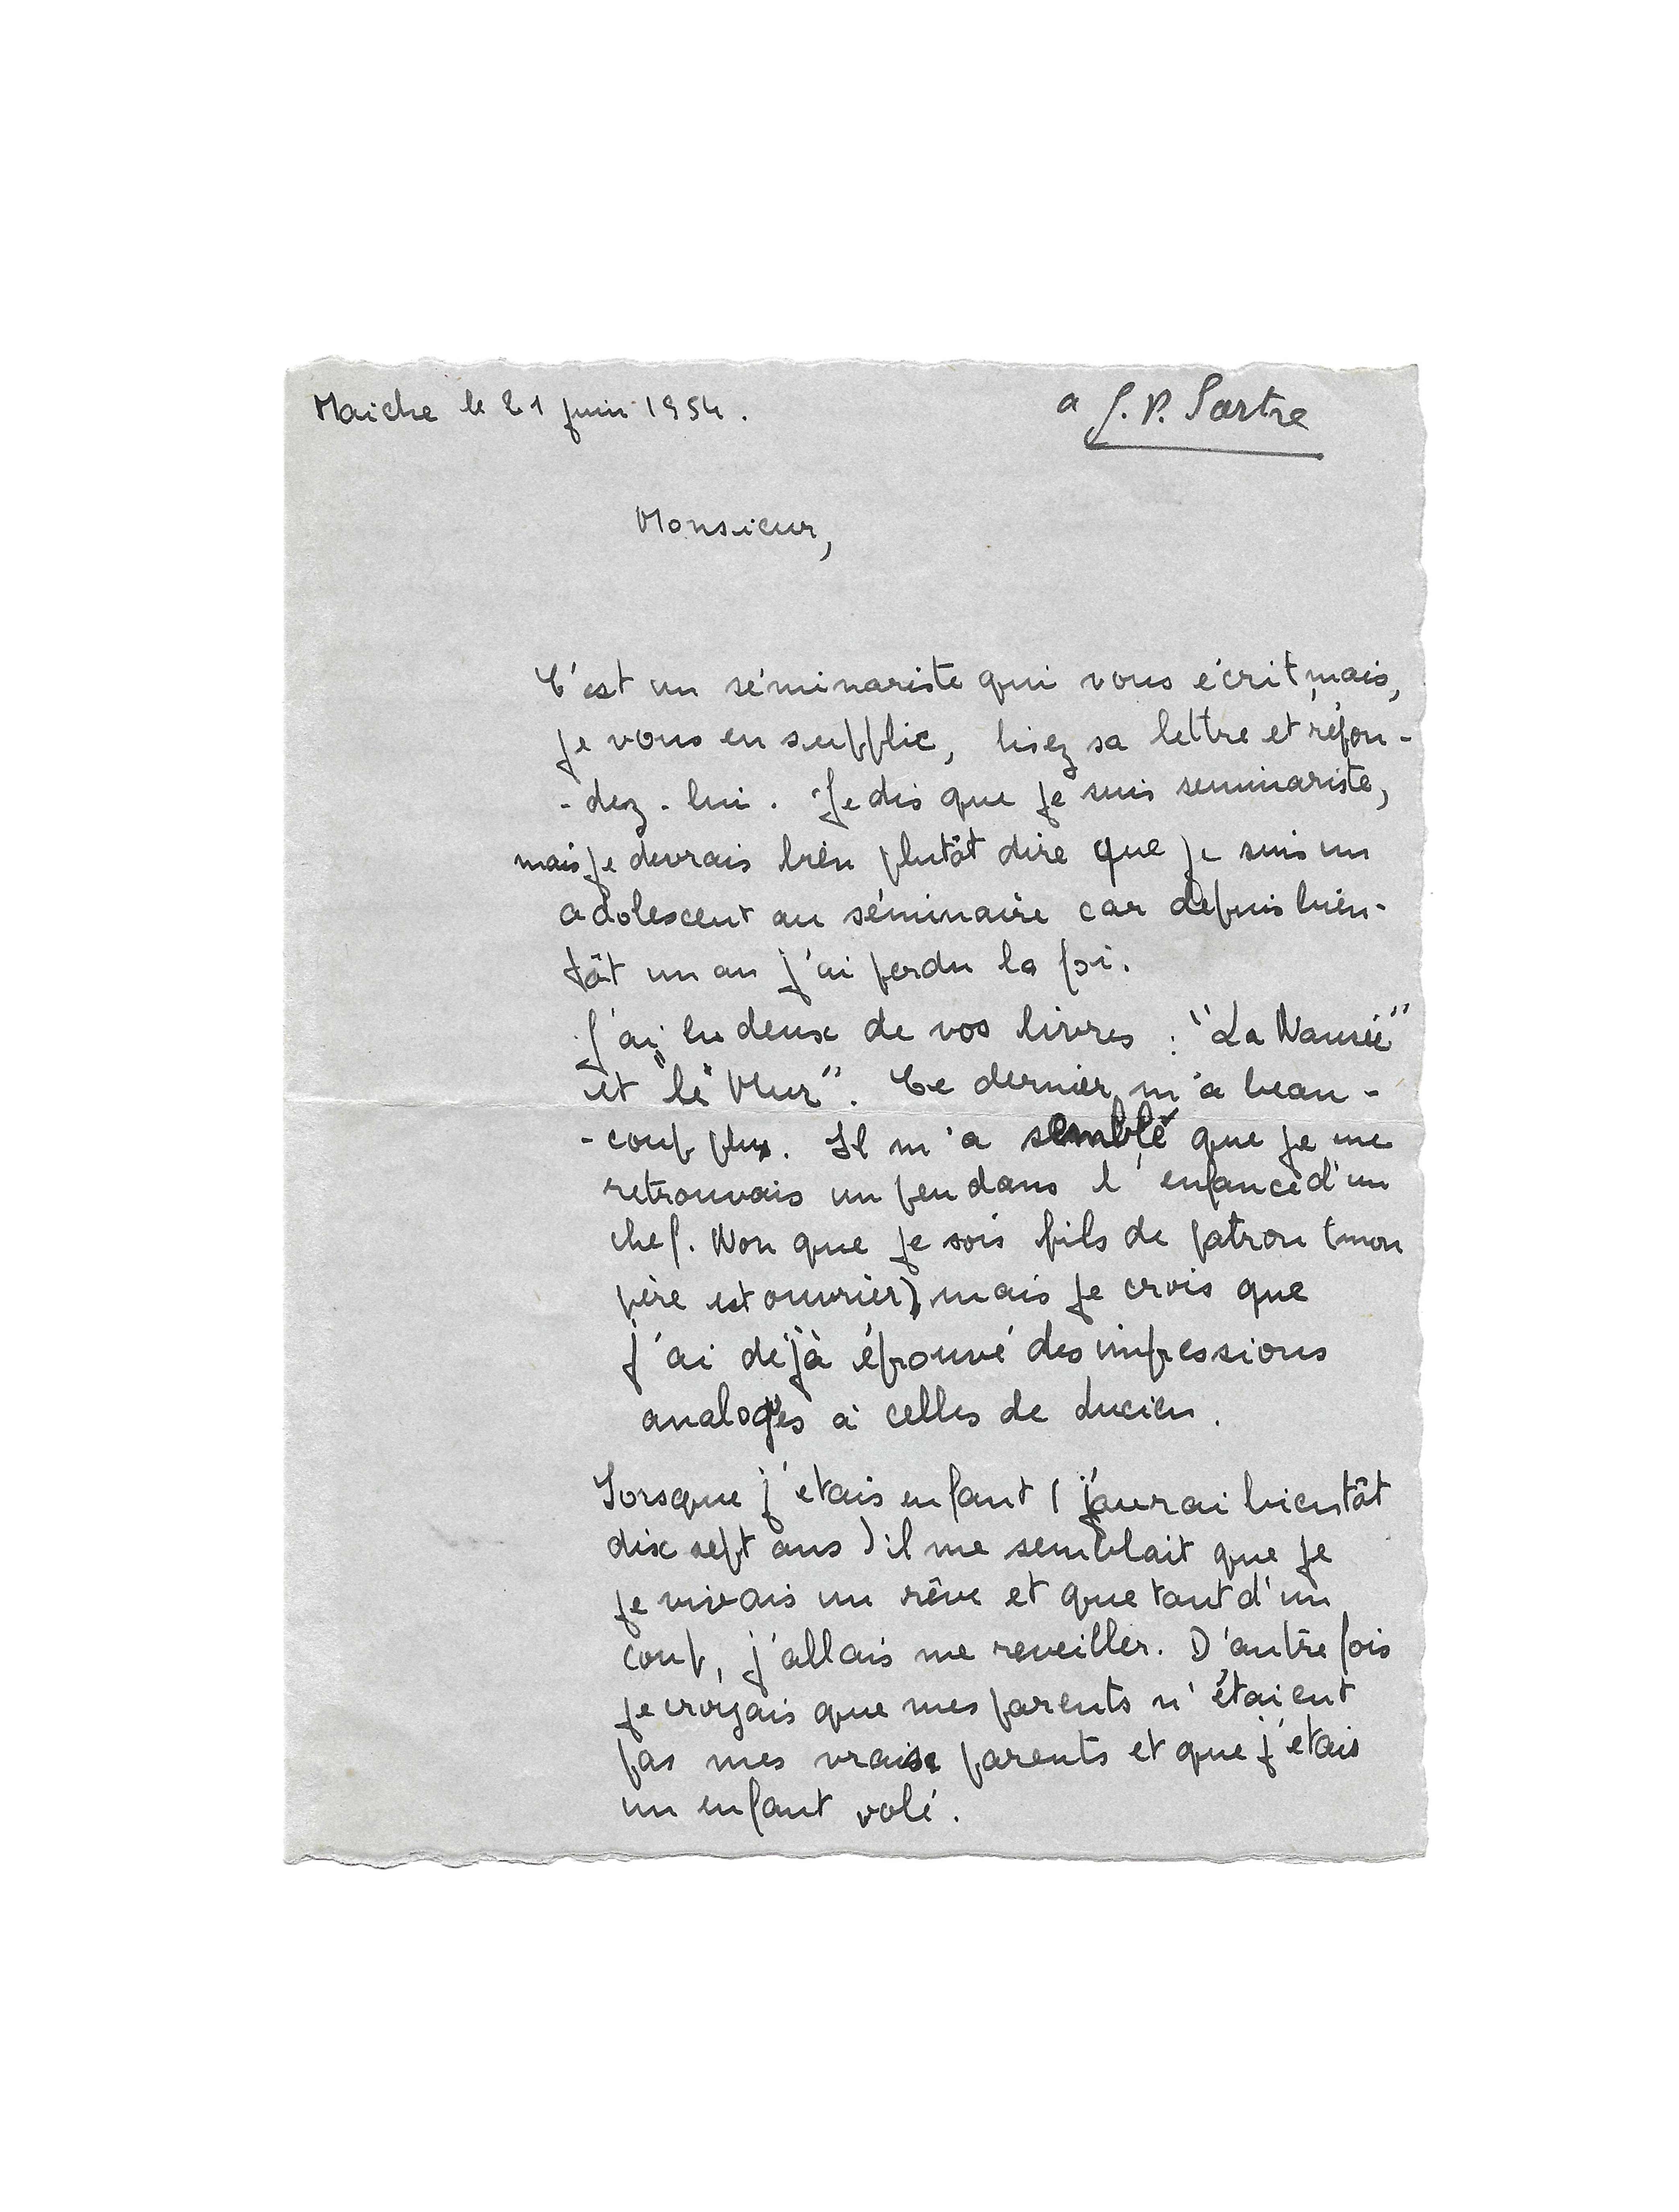 Maiche le 21 juin 1954.
a J. P. Sartre
Monsieur,
C'est un séminariste qui vous écrit, mais,
je vous en supplie, lisez sa lettre et répon-
-dez-lui. Je dis que je suis seminariste,
mais je devrais bien plutôt dire que je suis un
adolescent au séminaire car depuis bien-
tôt un an j'ai perdu la foi.
J'ai lu deux de vos livres : "La Nausée"
et "le Mur". Ce dernier m'a beau-
-coup plu. Il m'a semblé que je me
retrouvais un peu dans l'enfance d'un
chef. Non que je sois fils de patron (mon
père est ouvrier), mais je crois que
j'ai déjà éprouvé des impressions
analogues à celles de Lucien.
Lorsque j'étais enfant (j'aurai bientôt
dix sept ans) il me semblait que je
je vivais un rêve et que tout d'un
coup, j'allais me reveiller. D'autre fois
je croyais que mes parents n'étaient
pas mes vrais parents et que j'étais
un enfant volé.